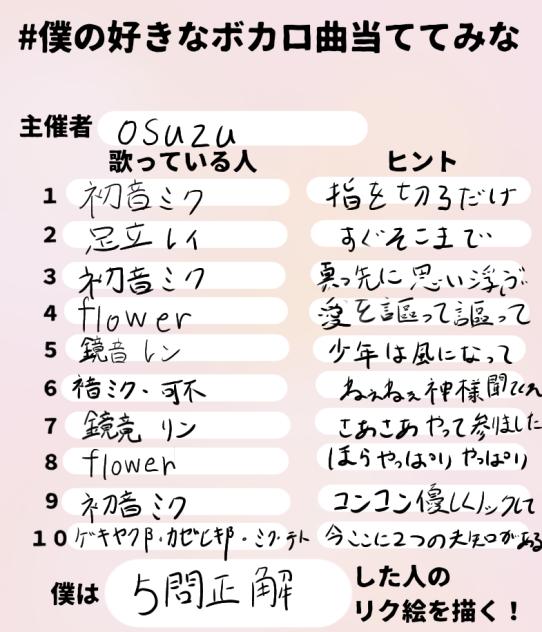 #僕の好きなボカロ曲当ててみな
主催者 osuzu
歌っている人 ヒント
1 初音ミク 指を切るだけ
2 足立レイ すぐそこまで
3 初音ミク 真っ先に思い浮ぶ
4 flower 愛を謳って謳って
5 鏡音レン 少年は風になって
6 初音ミク・可不 ねぇねぇ神様聞てくれ
7 鏡音リン さあさあやって参りました
8 flower ほらやっぱりやっぱり
9 初音ミク コンコン優しくノックして
10 ゲキヤクβ・カゼヒキβ・ミク・テト 今ここに2つの矢印がある
僕は 5問正解 した人の
リク絵を描く！